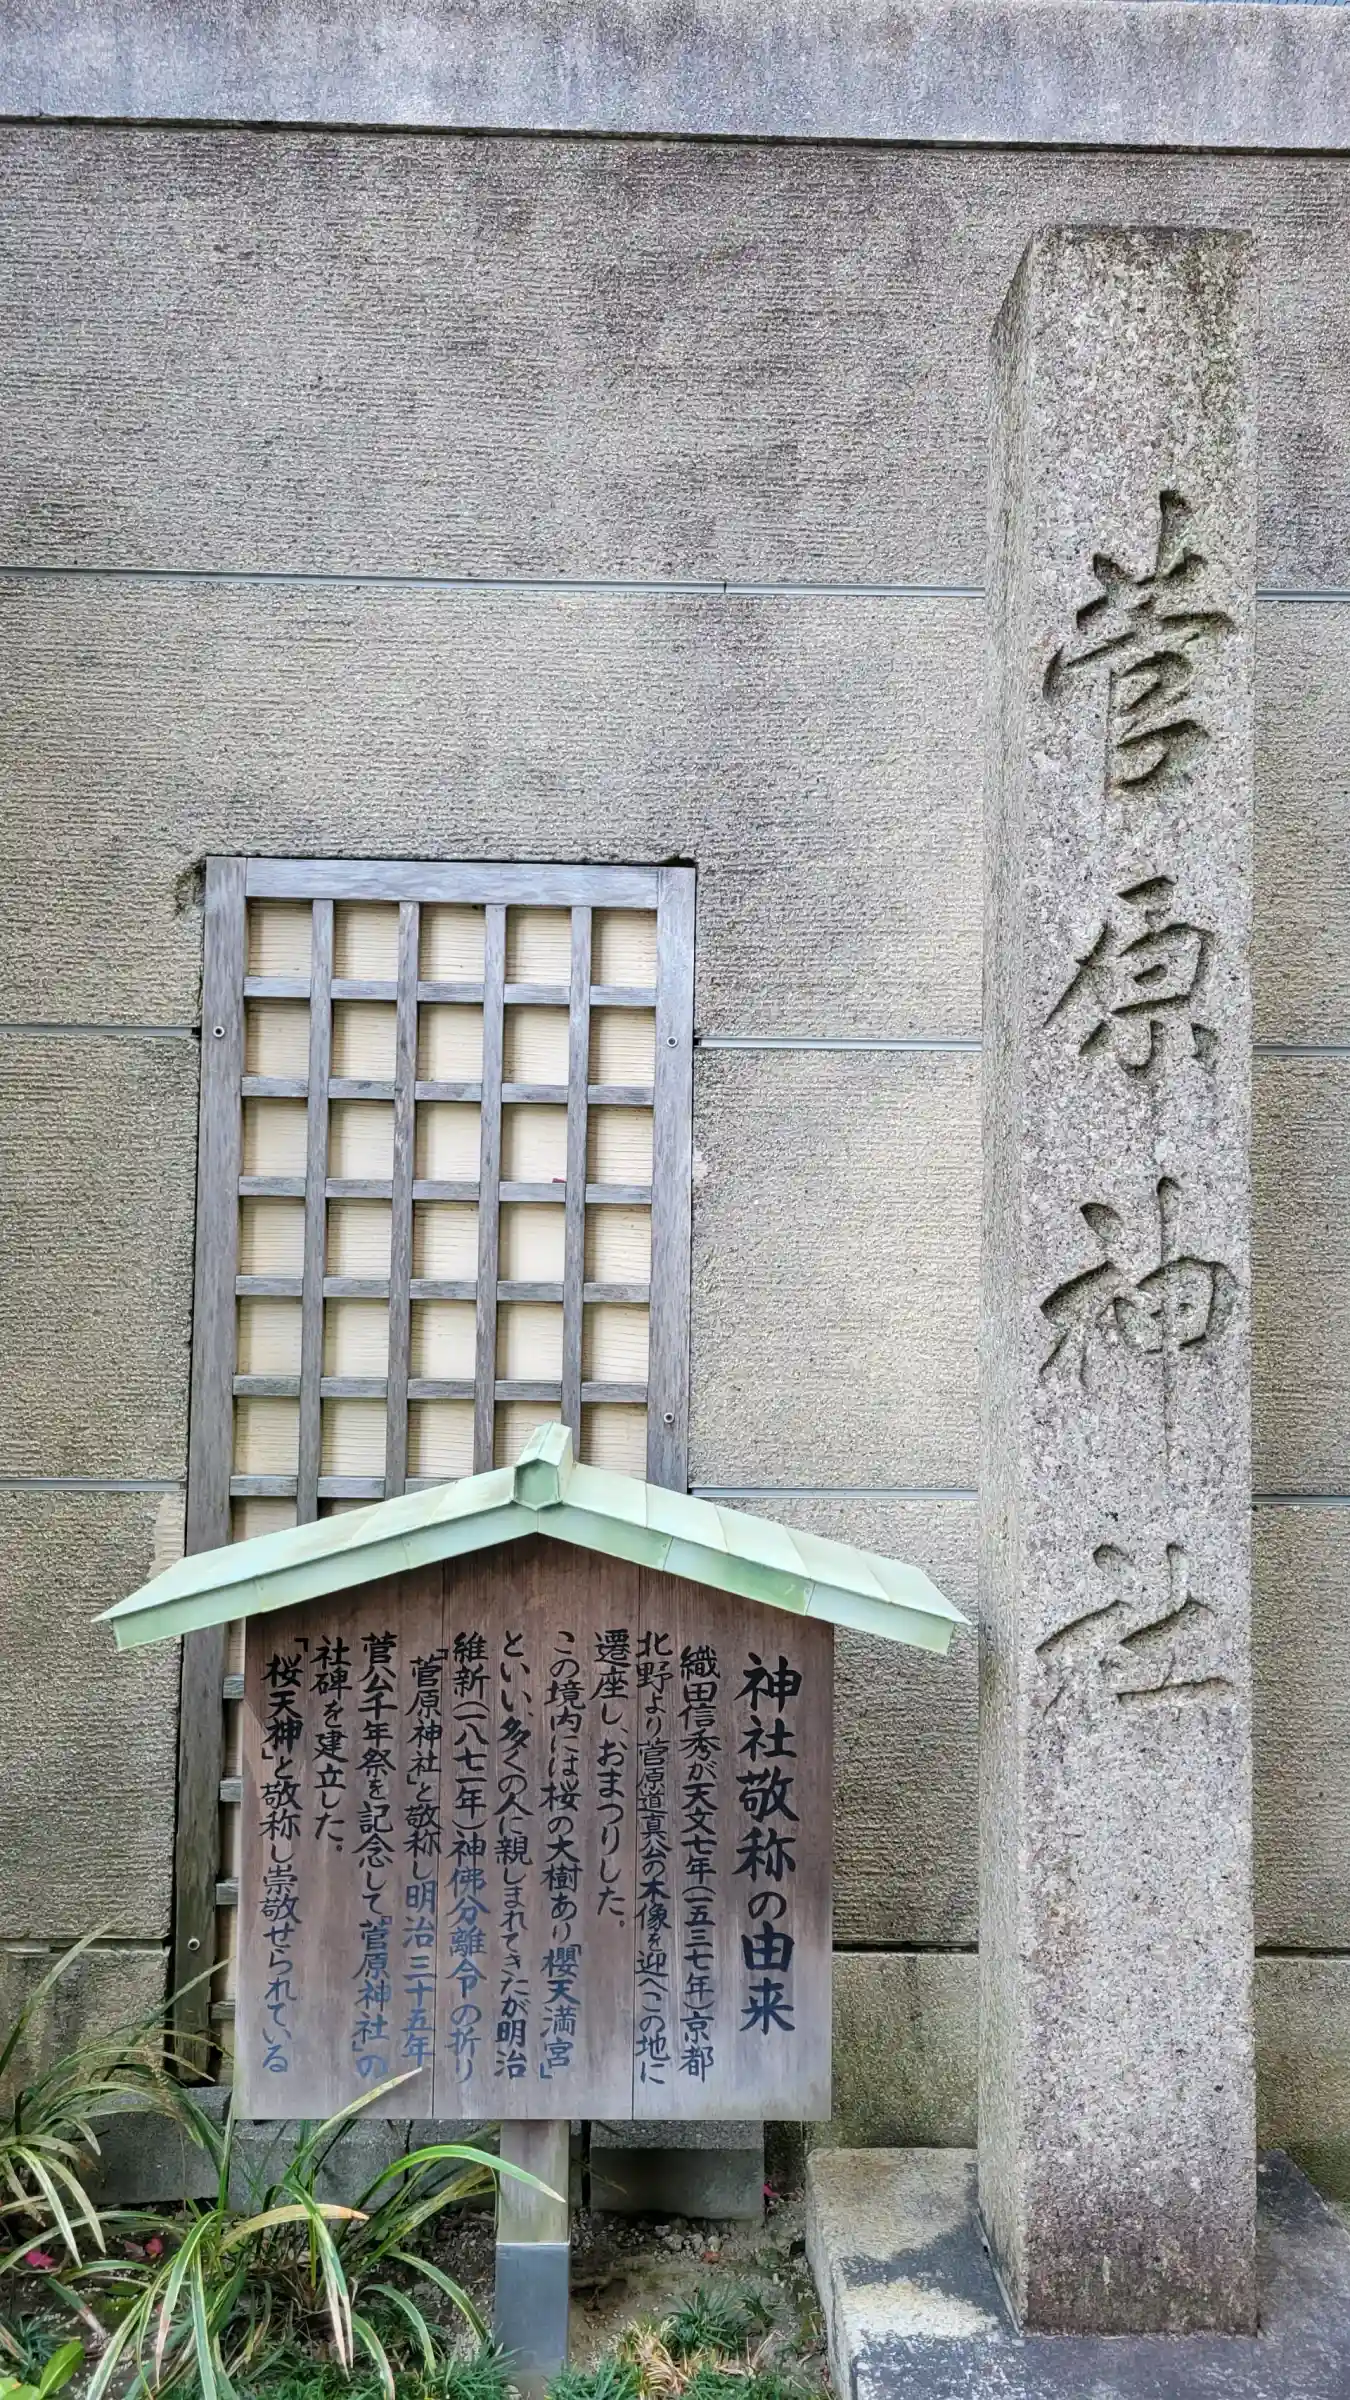 菅原神社
神社敬称の由来
織田信秀が天文七年(一五三七年)京都
北野より菅原道真公の木像を迎へこの地に
遷座し、おまつりした。
この境内には桜の大樹あり「櫻天満宮」
といい、多くの人に親しまれてきたが明治
維新(一八七一年)神佛分離令の折り
「菅原神社」と敬称し明治三十五年
菅公千年祭を記念して「菅原神社」の
社碑を建立した。
「桜天神」と敬称し崇敬せられている